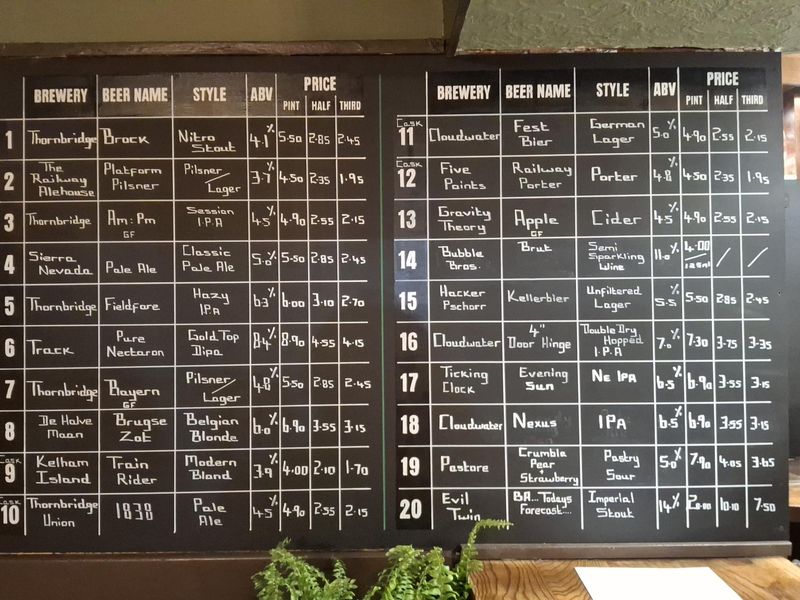 BREWERY BEER NAME STYLE ABV PRICE
PINT HALF THIRD
1 Thornbridge Brock Nitro Stout 4.1% 5.50 2.85 2.45
2 The Railway Alehouse Platform Pilsner Pilsner / Lager 3.7% 4.50 2.35 1.95
3 Thornbridge Am:Pm GF Session I.P.A 4.5% 4.90 2.55 2.15
4 Sierra Nevada Pale Ale Classic Pale Ale 5.0% 5.50 2.85 2.45
5 Thornbridge Fieldfare Hazy IPA 6.3% 6.00 3.10 2.70
6 Track Pure Nectaron Gold Top Dipa 8.4% 8.90 4.55 4.15
7 Thornbridge Bayern GF Pilsner / Lager 4.8% 5.50 2.85 2.45
8 De Halve Maan Brugse Zot Belgian Blonde 6.0% 6.90 3.55 3.15
Cask 9 Kelham Island Train Rider Modern Blond 3.9% 4.00 2.10 1.70
Cask 10 Thornbridge Union 1838 Pale Ale 4.5% 4.90 2.55 2.15
BREWERY BEER NAME STYLE ABV PRICE
PINT HALF THIRD
Cask 11 Cloudwater Fest Bier German Lager 5.0% 4.90 2.55 2.15
Cask 12 Five Points Railway Porter Porter 4.8% 4.50 2.35 1.95
13 Gravity Theory Apple GF Cider 4.5% 4.90 2.55 2.15
14 Bubble Bros. Brut Semi Sparkling Wine 11.0% 4.00 / 125ml / /
15 Hacker Pschorr Kellerbier Unfiltered Lager 5.5% 5.50 2.85 2.45
16 Cloudwater 4" Door Hinge Double Dry Hopped I.P.A 7.0% 7.30 3.75 3.35
17 Ticking Clock Evening Sun NE IPA 6.5% 6.90 3.55 3.15
18 Cloudwater Nexus IPA 6.5% 6.90 3.55 3.15
19 Pastore Crumble Pear + Strawberry Pastry Sour 5.0% 7.90 4.05 3.65
20 Evil Twin BA...Todays Forecast.... Imperial Stout 14% 10.10 7.50